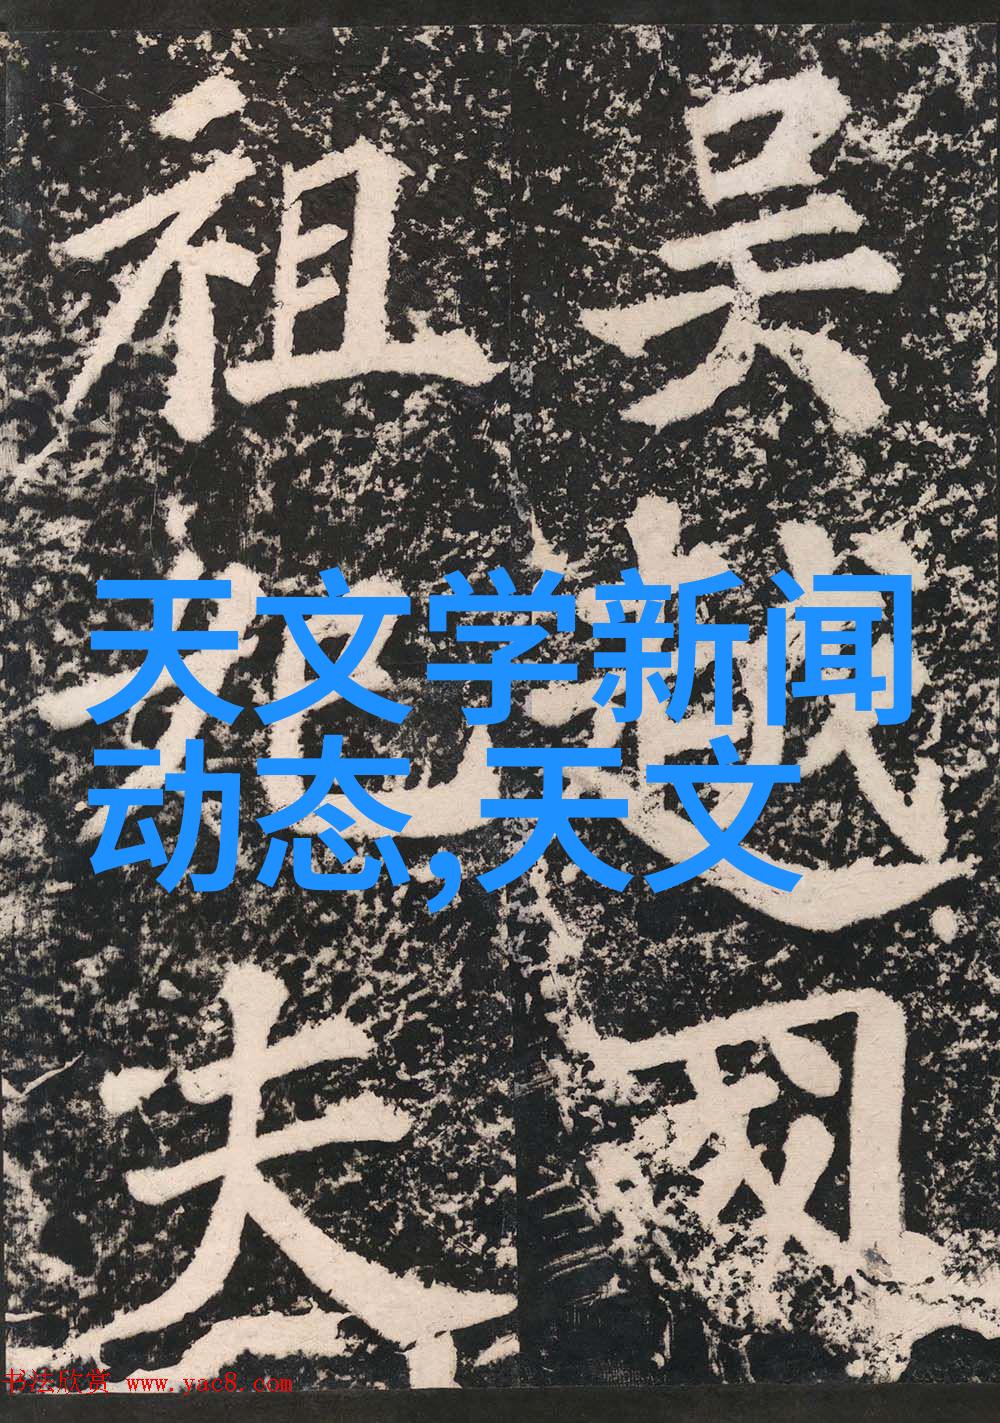 吳越國
祖妃夫
天文学新闻
动态,天文
书法欣赏 www.yac8.com